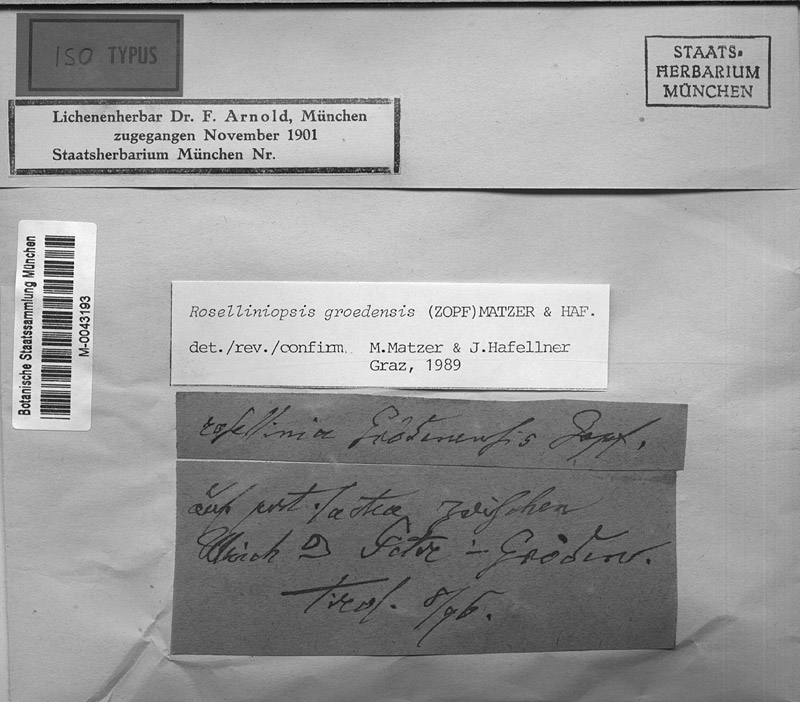 ISO TYPUS
STAATS-
HERBARIUM
MÜNCHEN
Lichenenherbar Dr. F. Arnold, München
zugegangen November 1901
Staatsherbarium München Nr.
Botanische Staatssammlung München
M-0043193
Roselliniopsis groedensis (ZOPF)MATZER & HAF.
det./rev./confirm. M.Matzer & J.Hafellner
Graz, 1989
rosellinia Grödenensis Zopf.
auf pert. lactea zwischen
Ulrich & Gröden.
Tirol. 8/96.